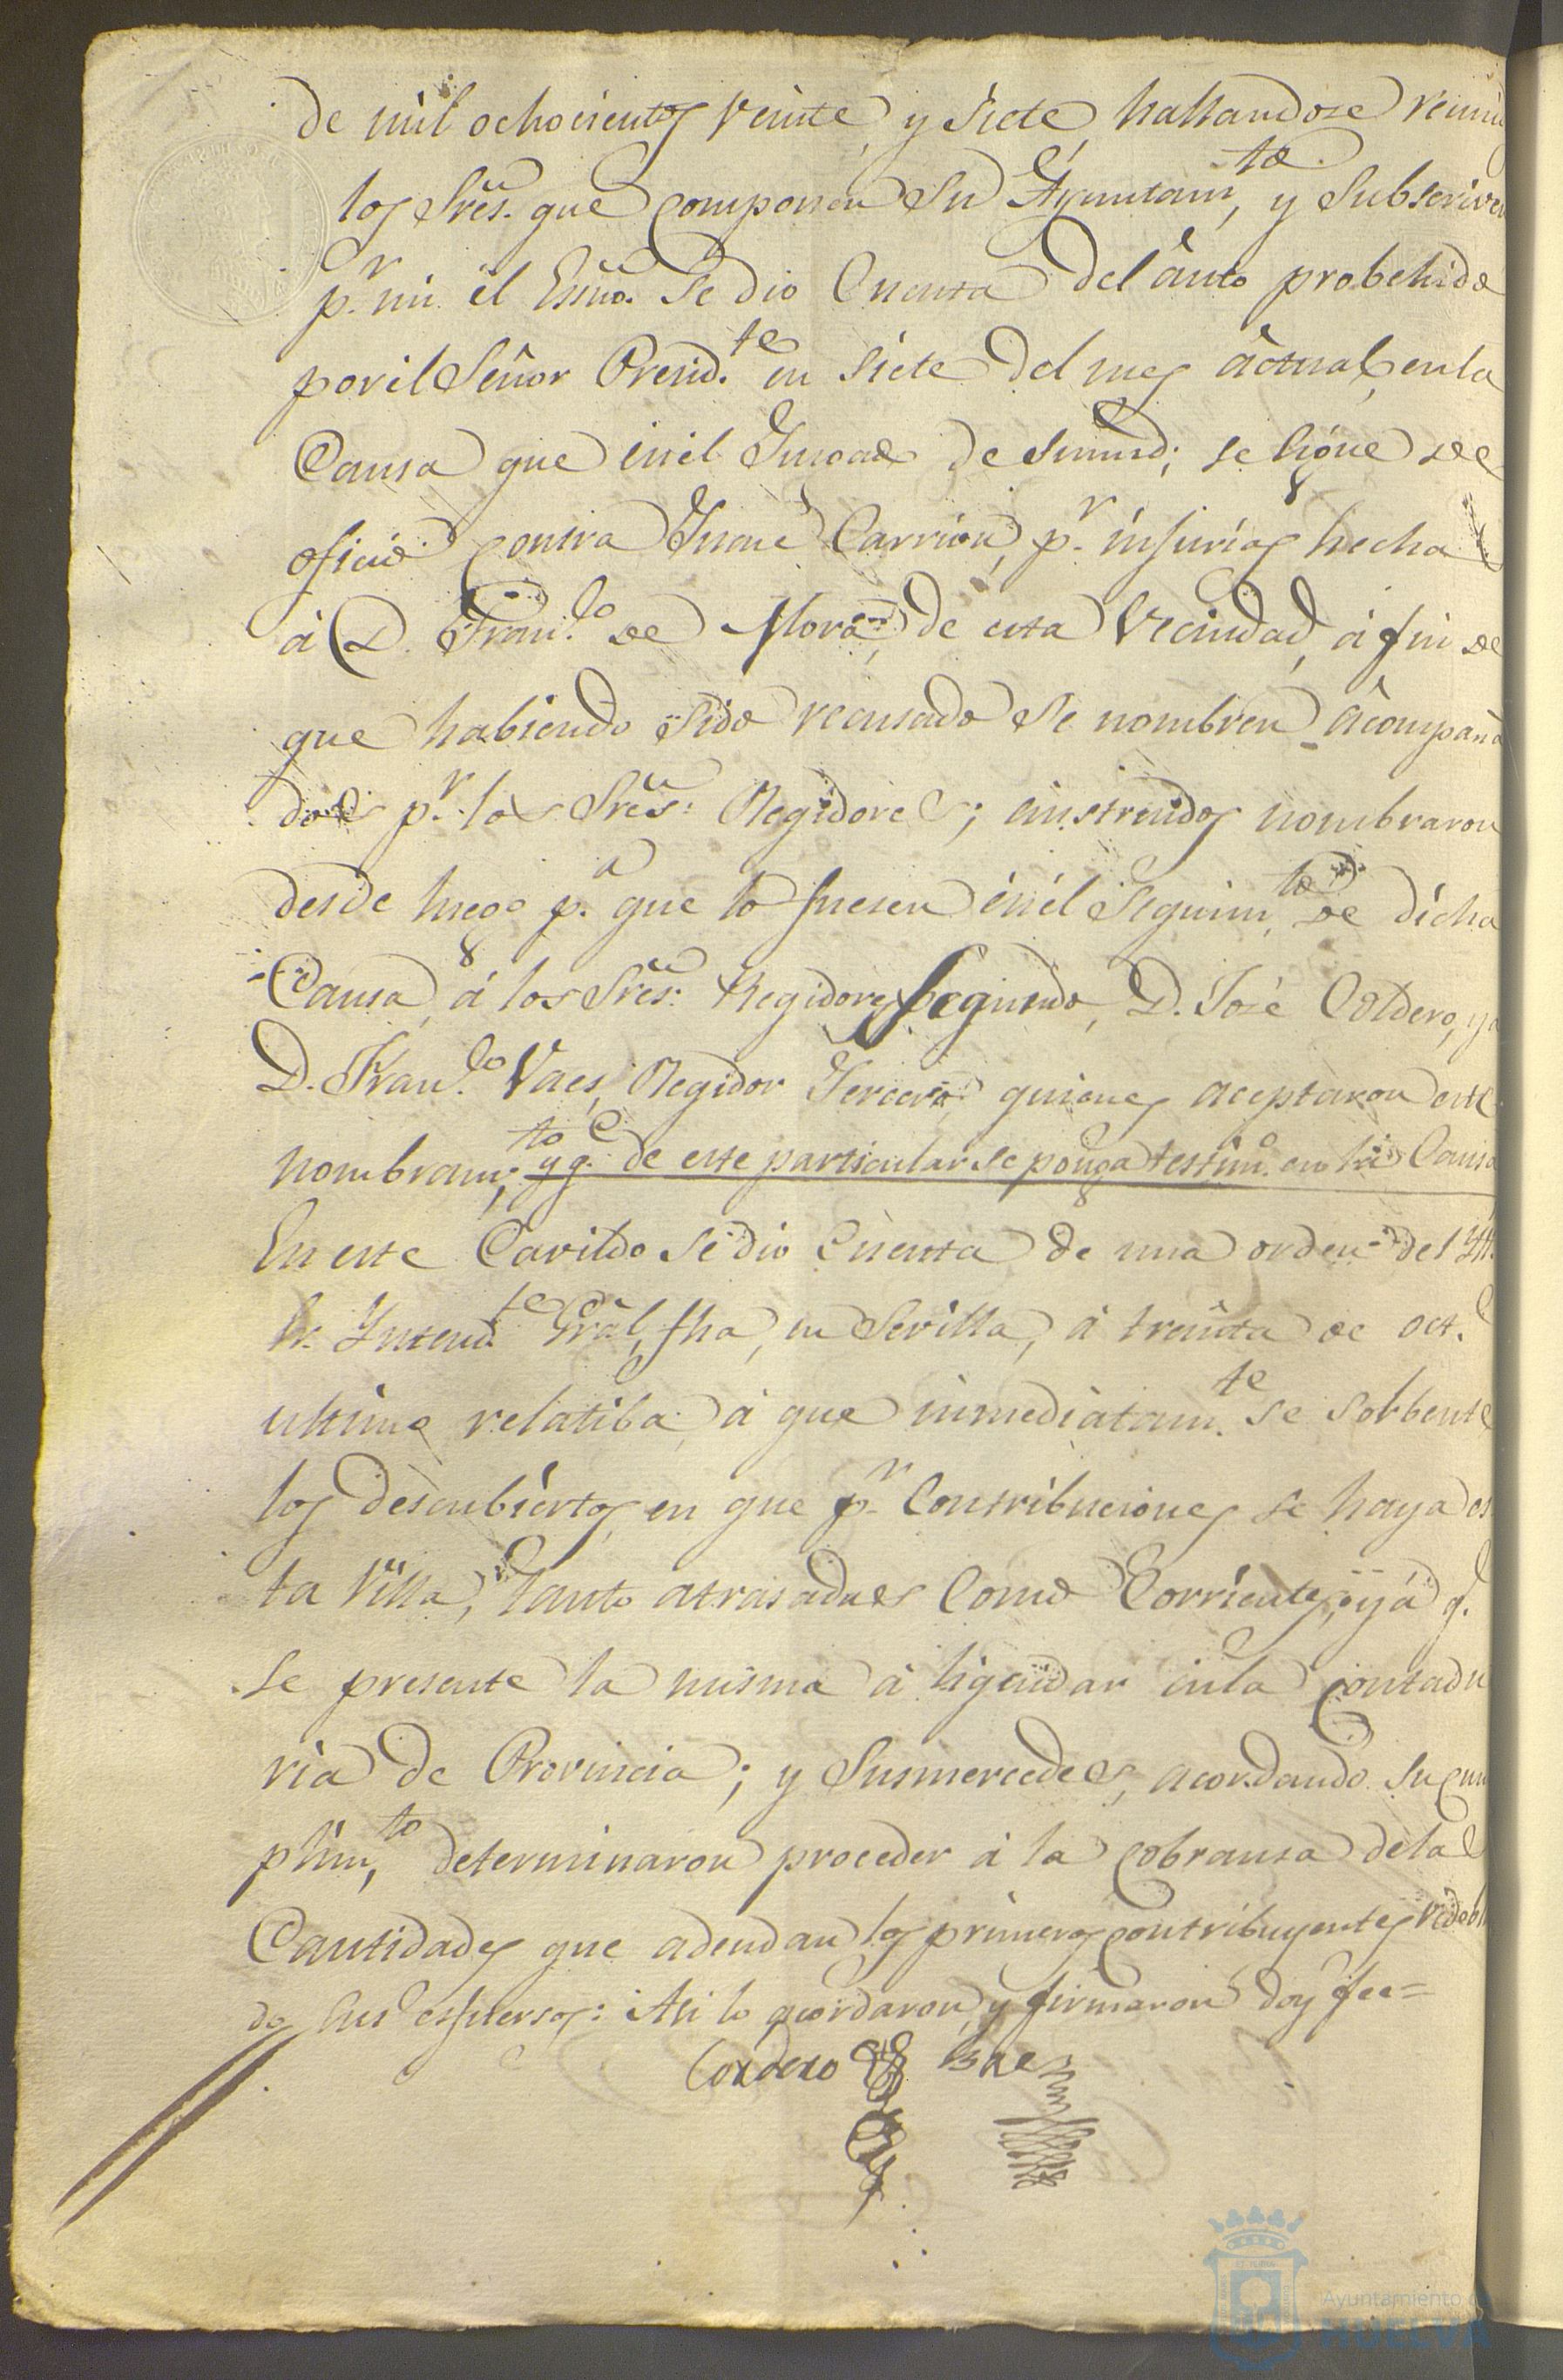 de mil ochocientos veinte y siete hallandose reuni
los Sres. que componen su Ayuntamto, y subscriven
pr. mi el Esno. se dio cuenta del auto probehido
por el Señor Presidte. en siete del mes actual, en la
Causa que en el Jusgado de sumd; se sigue de
oficio contra Juan Carrion, pr. injurias hechas
á D. Franco. de Mora, de esta Vecindad, á fin de
que habiendo sido recusado se nombren acompaña
dos pr. los Sres. Regidores; é instruidos nombraron
desde luego pa. que lo fuesen en el seguimto. de dicha
Causa, á los Sres. Regidores segundo, D. José Cordero, y a
D. Franco. Vaes, Regidor Tercero, quienes aceptaron este
nombramto; y q. de este particular se ponga testimo. en la Causa
En este Cavildo se dio cuenta de una orden del
Sr. Intendte. Gral, fha, en Sevilla, á treinta de oct.e
ultimo relatiba á que inmediatamte. se solbente
los descubiertos en que pr. Contribuciones se haya es
ta Villa, tanto atrasadas como Corrientes, y á q.
se presente la misma á liquidar en la contadu
ria de Provincia; y Susmercedes, acordando su cum
plimto, determinaron proceder á la cobransa de las
Cantidades que adeudan los primeros contribuyentes
do sus esfuersos: Asi lo acordaron, y firmaron doy fee=
Cordero Baes
Ayuntamiento de
HUELVA